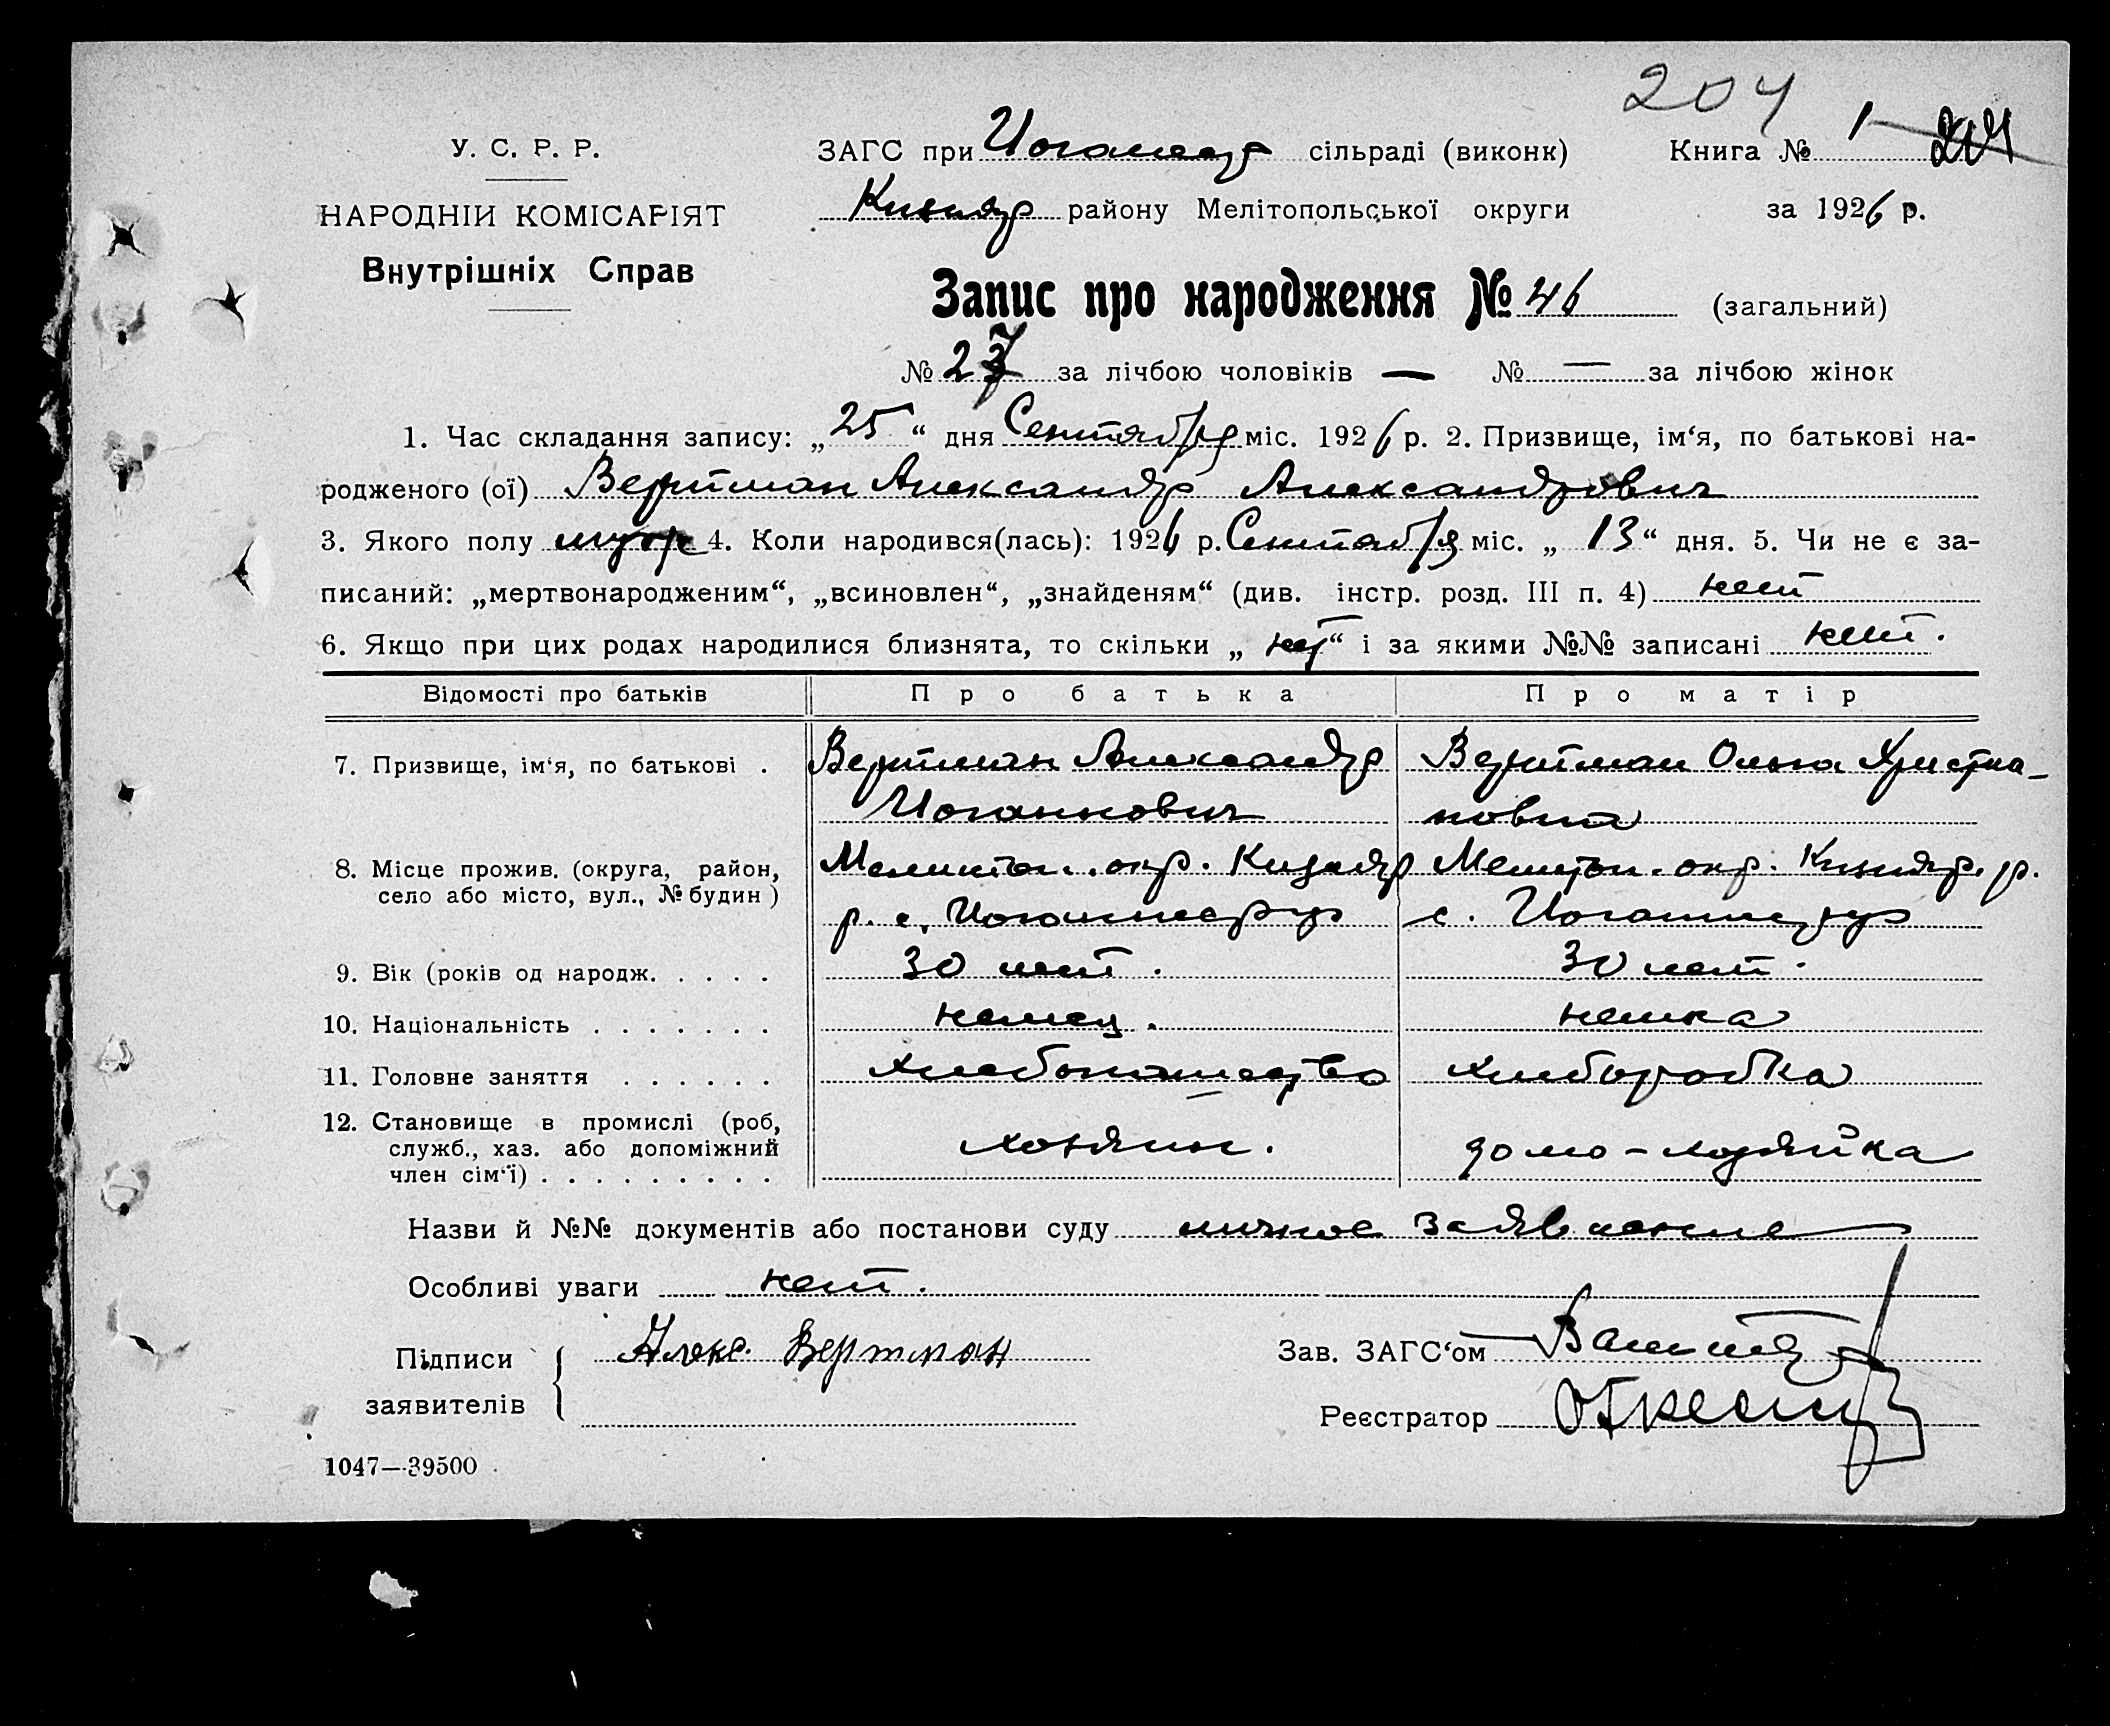 204
У. С. Р. Р.
ЗАГС при сільраді (виконк) Книга № 1 204
НАРОДНІЙ КОМІСАРІЯТ
Кизияр району Мелітопольської округи за 1926 р.
Внутрішніх Справ
Запис про народження № 46 (загальний)
№ 27 за лічбою чоловіків — № — за лічбою жінок
1. Час складання запису: „25“ дня Сентября міс. 1926 р. 2. Призвище, ім‘я, по батькові на-
родженого (ої) Вертман Александр Александрович
3. Якого полу муж 4. Коли народився(лась): 1926 р. Сентября міс. „13“ дня. 5. Чи не є за-
писаний: „мертвонародженим“, „всиновлен“, „знайденям“ (див. інстр. розд. III п. 4) нет
6. Якщо при цих родах народилися близнята, то скільки „нет“ і за якими №№ записані нет.
Відомості про батьків Про батька Про матір
7. Призвище, ім‘я, по батькові . Вертман Александр Вертман Ольга Христиа-
Иоганнович новна
8. Місце прожив. (округа, район, Мелитоп. окр. Кизияр Мелитоп. окр. Кизияр. р.
село або місто, вул., № будин) р. с. Иоганнесру с. Иоганнесру
9. Вік (років од народж. . . . . 30 лет. 30 лет.
10. Національність . . . . . . . немец. немка
11. Головне заняття . . . . . . хлебопашество хлиборобка
12. Становище в промислі (роб,
служб., хаз. або допоміжний хозяин. домо-хозяйка
член сім‘ї) . . . . . . . . .
Назви й №№ документів або постанови суду личное заявление
Особливі уваги нет.
Підписи Алекс. Вертман Зав. ЗАГС‘ом
заявителів Реєстратор
1047—39500